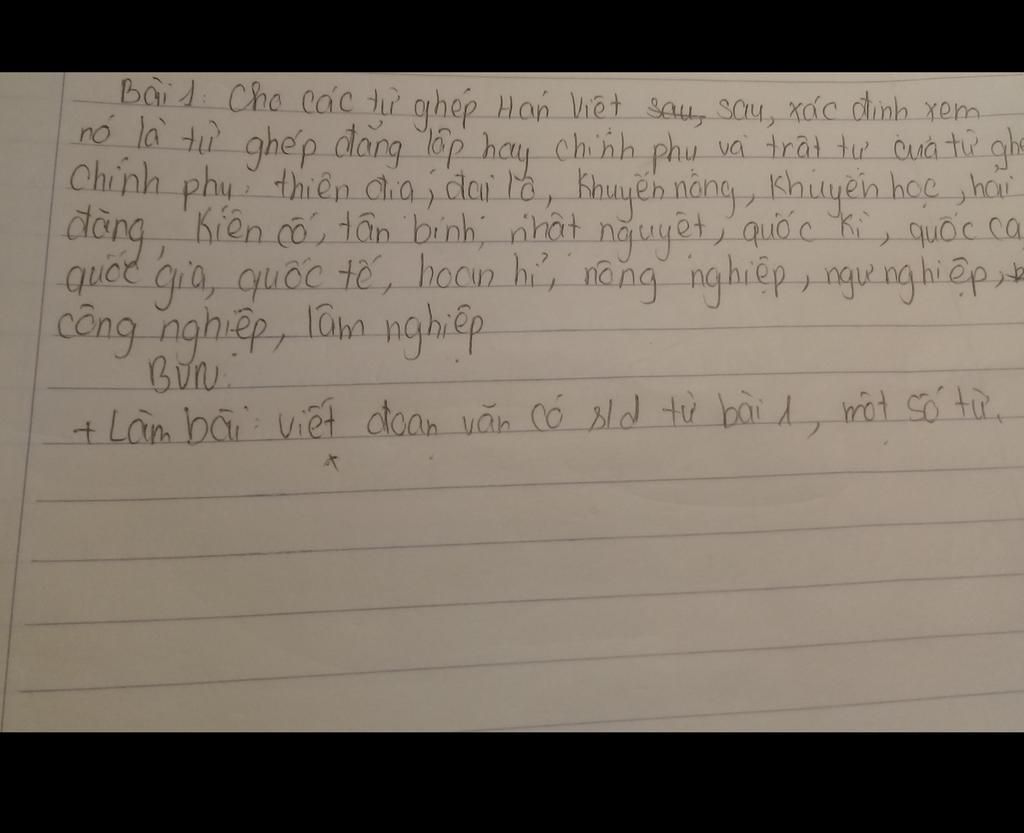 Bài 1: Cho các từ ghép Hán Việt sau, sau, xác định xem
nó là từ ghép đẳng lập hay chính phụ và trật tự của từ ghé
Chính phụ: thiên địa, đại lộ, Khuyến nông, Khuyến học, hải
đăng, Kiên cố, tân binh, nhật nguyệt, quốc kì, quốc ca
quốc gia, quốc tế, hoan hỉ, nông nghiệp, ngư nghiệp,
công nghiệp, lâm nghiệp
BVN:
+ Làm bài: viết đoạn văn có s/d từ bài 1, một số từ.